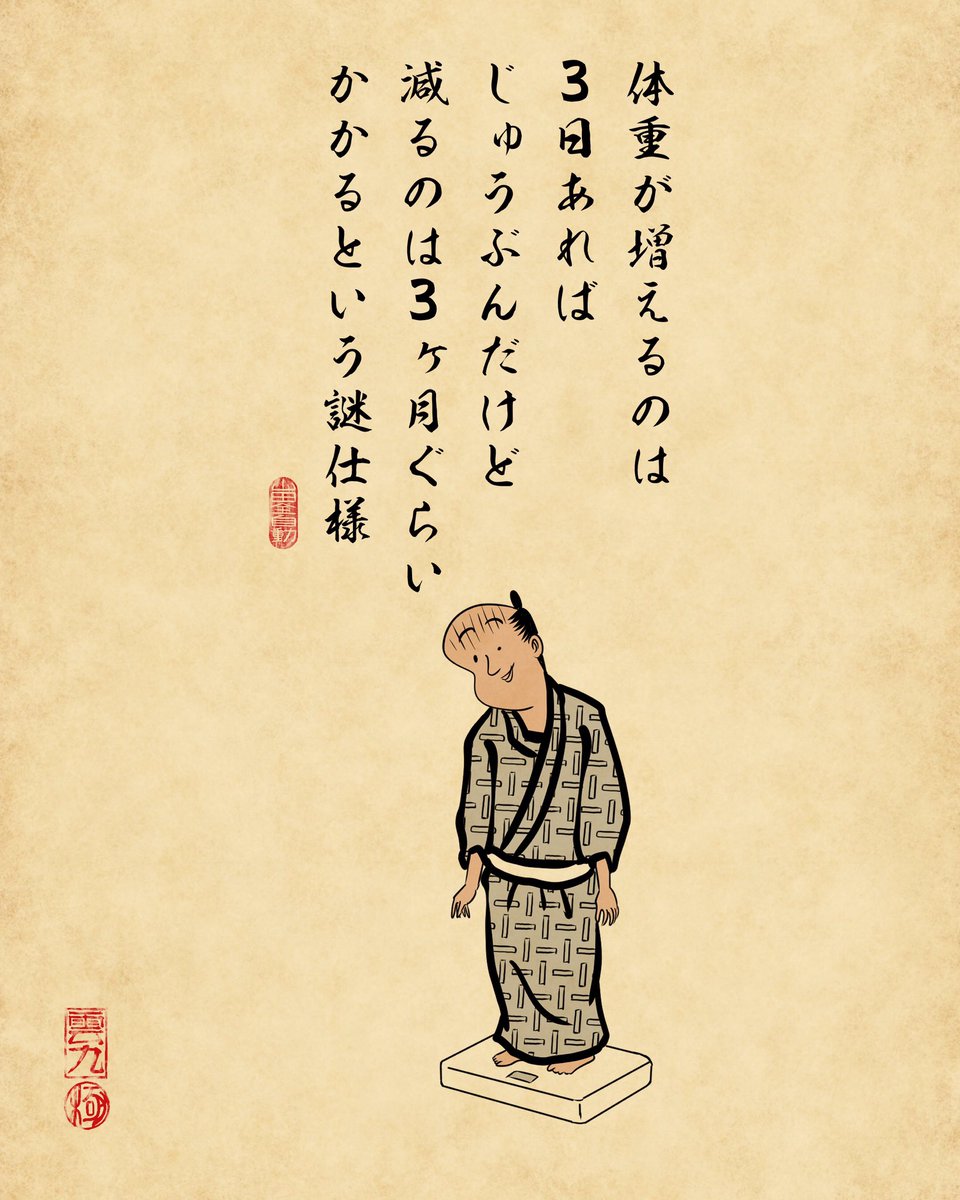 体重が増えるのは
3日あれば
じゅうぶんだけど
減るのは3ヶ月ぐらい
かかるという謎仕様